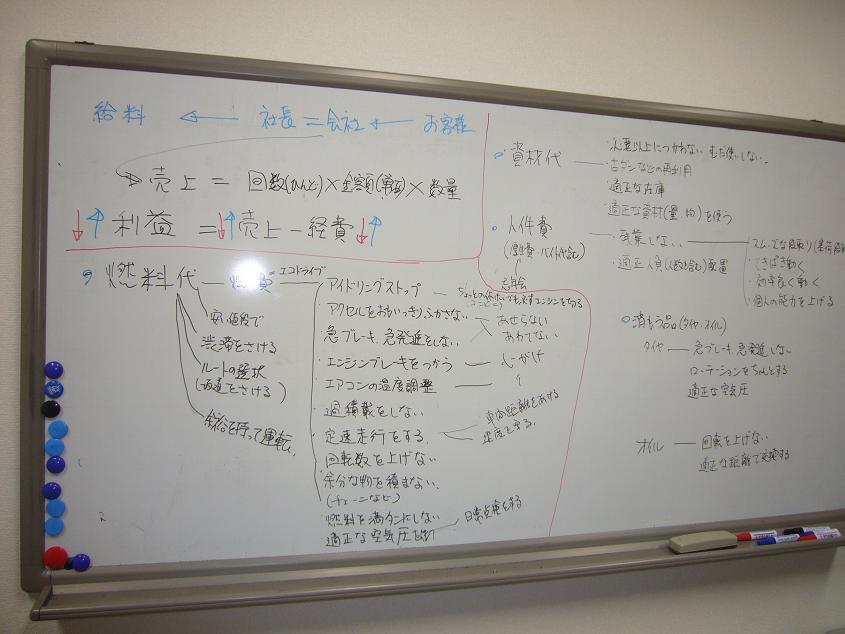 給料 ← 社長 = 会社 ← お客様
売上 = 回数(ひんど)×金額(単価)×数量
↓↑利益 = ↓↑売上 - 経費↓↑
燃料代 ― 燃費 エコドライブ
安い値段で
渋滞をさける
ルートの選択
(坂道をさける)
余裕を持って運転
アイドリングストップ
アクセルをおもいっきりふかさない
急ブレーキ、急発進をしない
あせらない
あわてない
・エンジンブレーキをつかう ― 心がけ
・エアコンの温度調整 ― 〃
過積載をしない
定速走行をする
車間距離をあける
速度を守る
回転数を上げない
余分な物を積まない
(チェーンなど)
燃料を満タンにしない
適正な空気圧
日常点検をする
資材代
・必要以上につかわない むだ使いしない
・古ダンなどの再利用
・適正な在庫
・適正な資材(量・物)を使う
人件費
(厚生費・バイト代含む)
忘年会
・残業しない
・適正人員(人数も含む)配置
・てきぱき動く
・効率良く動く
・個人の能力を上げる
消もう品(タイヤ・オイル)
タイヤ ― 急ブレーキ、急発進しない
ローテーションをちゃんとする
適正な空気圧
オイル ― 回転を上げない
適正な距離で交換する